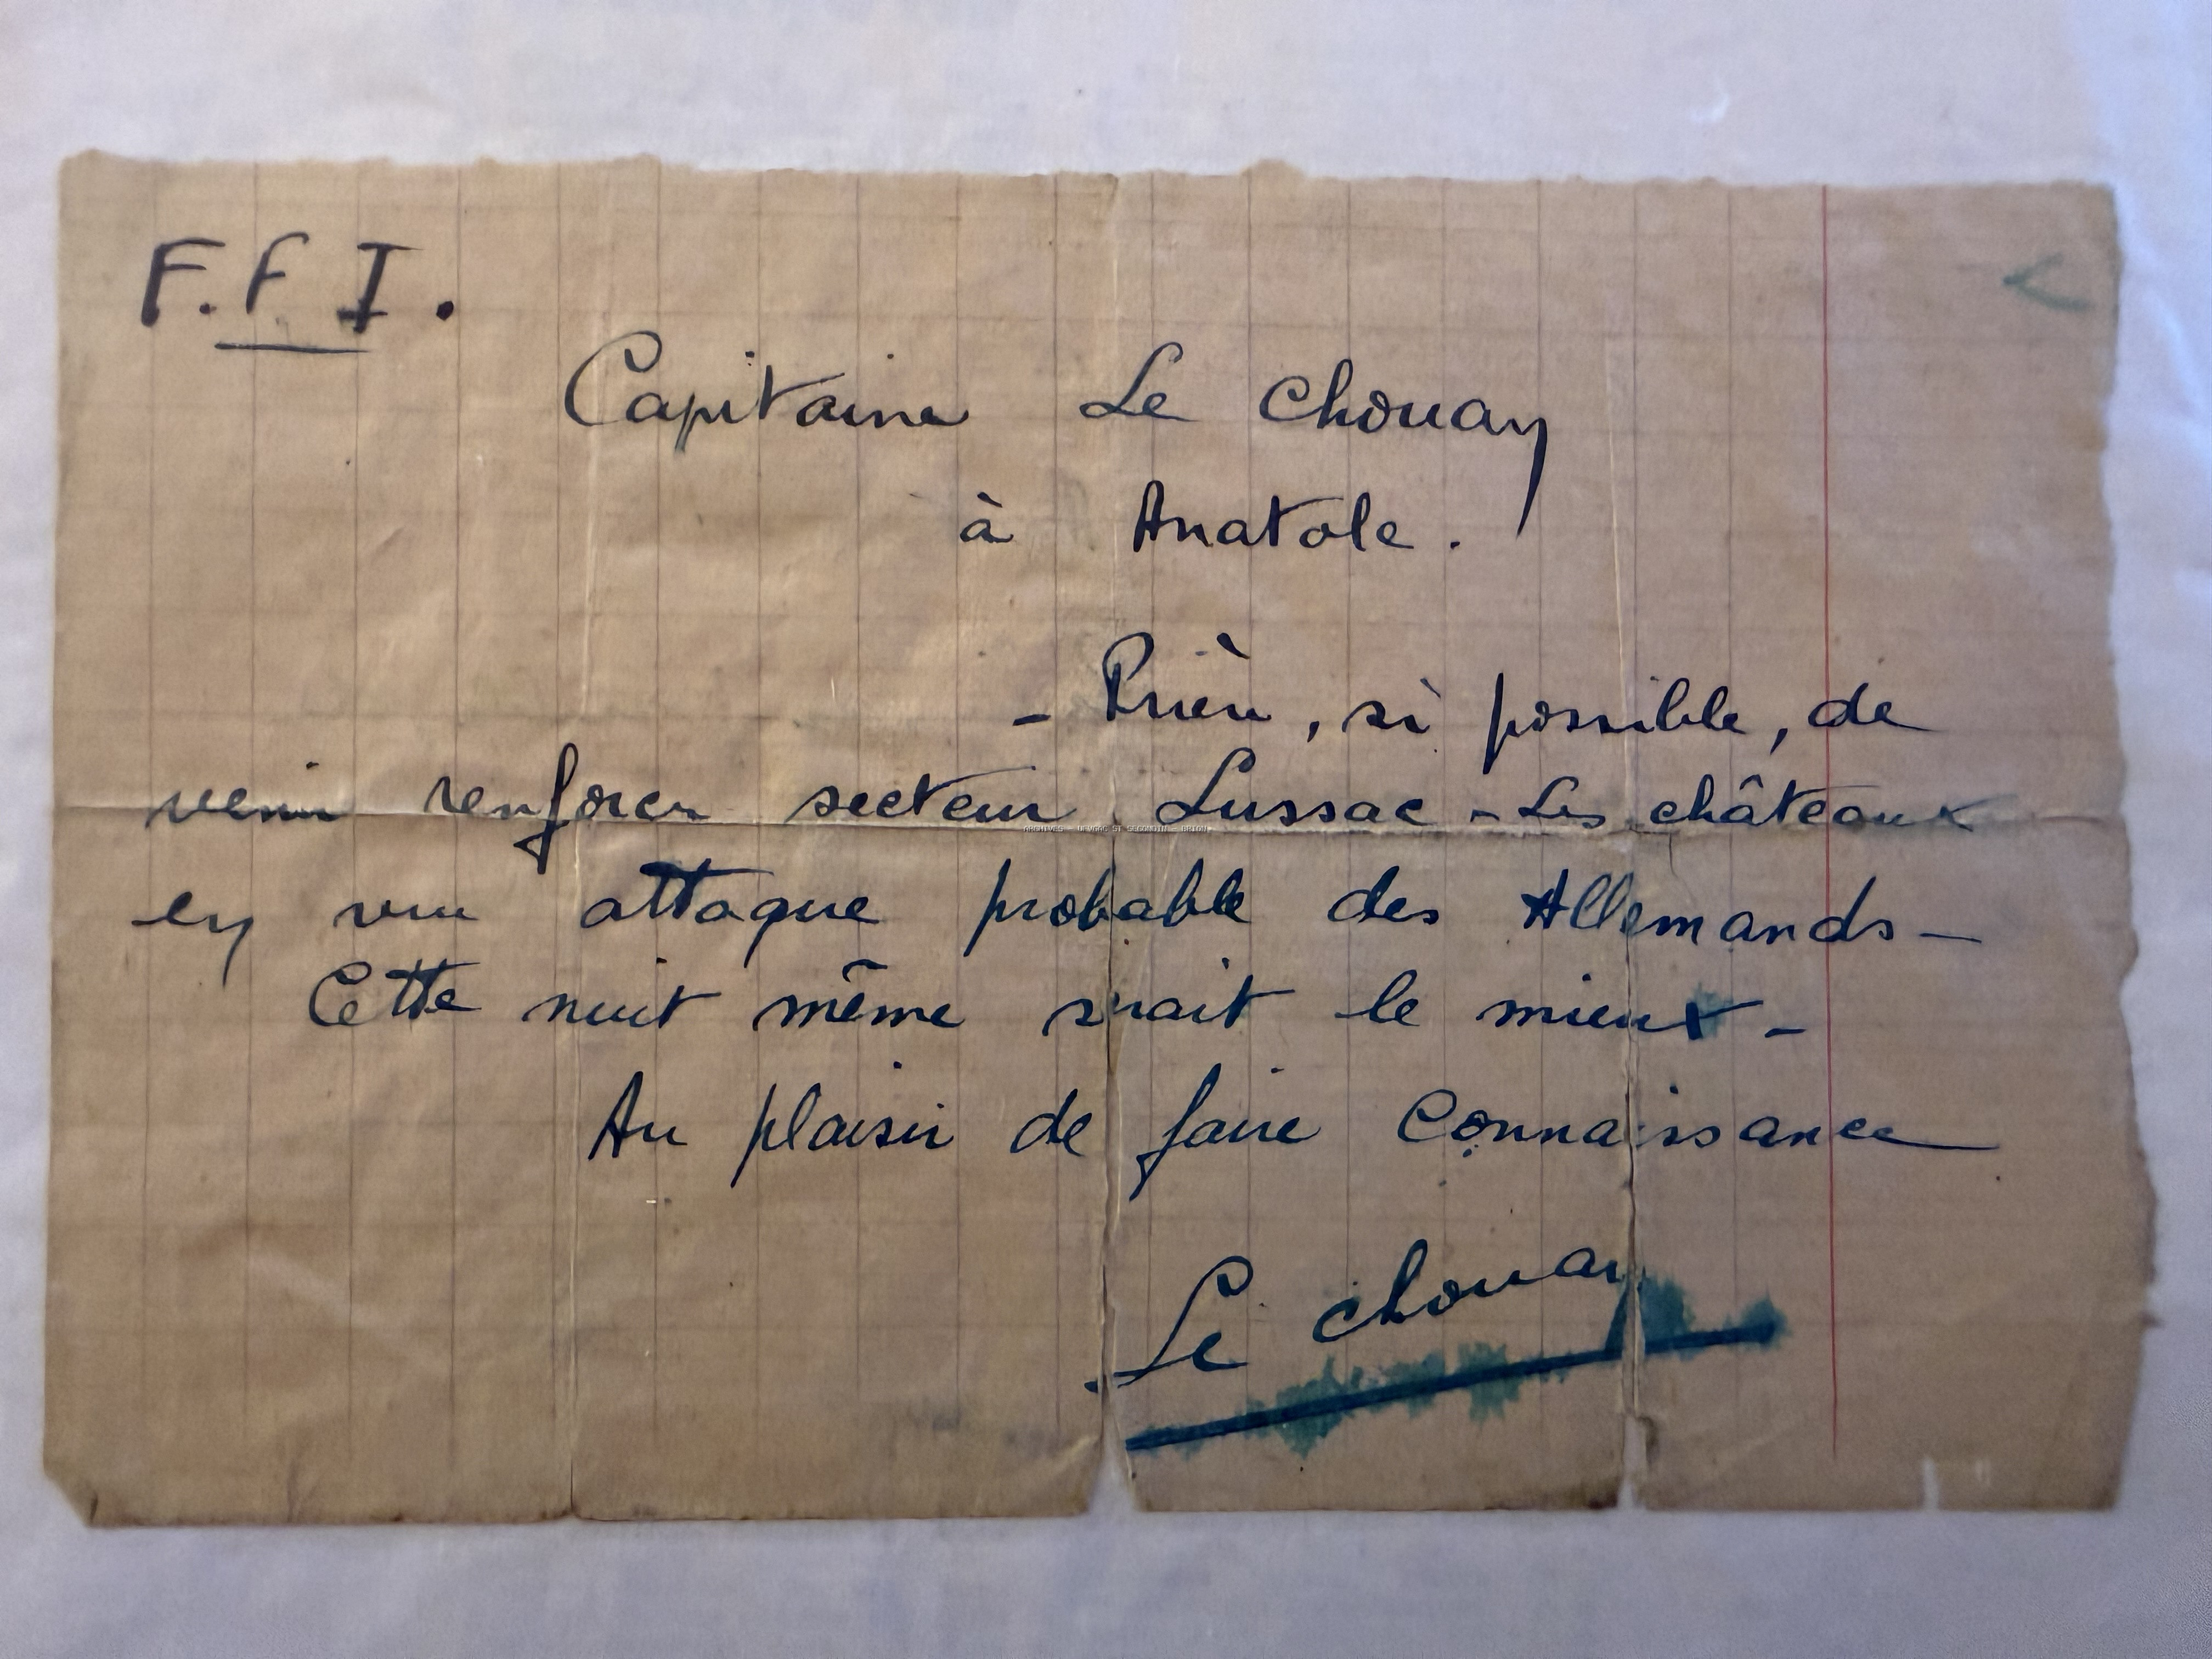 F.F I.
Capitaine Le Chouan
à Anatole.
- Prière, si possible, de
venir renforcer secteur Lussac-Les châteaux
en vue attaque probable des Allemands-
Cette nuit même serait le mieux-
Au plaisir de faire Connaissance
Le chouan